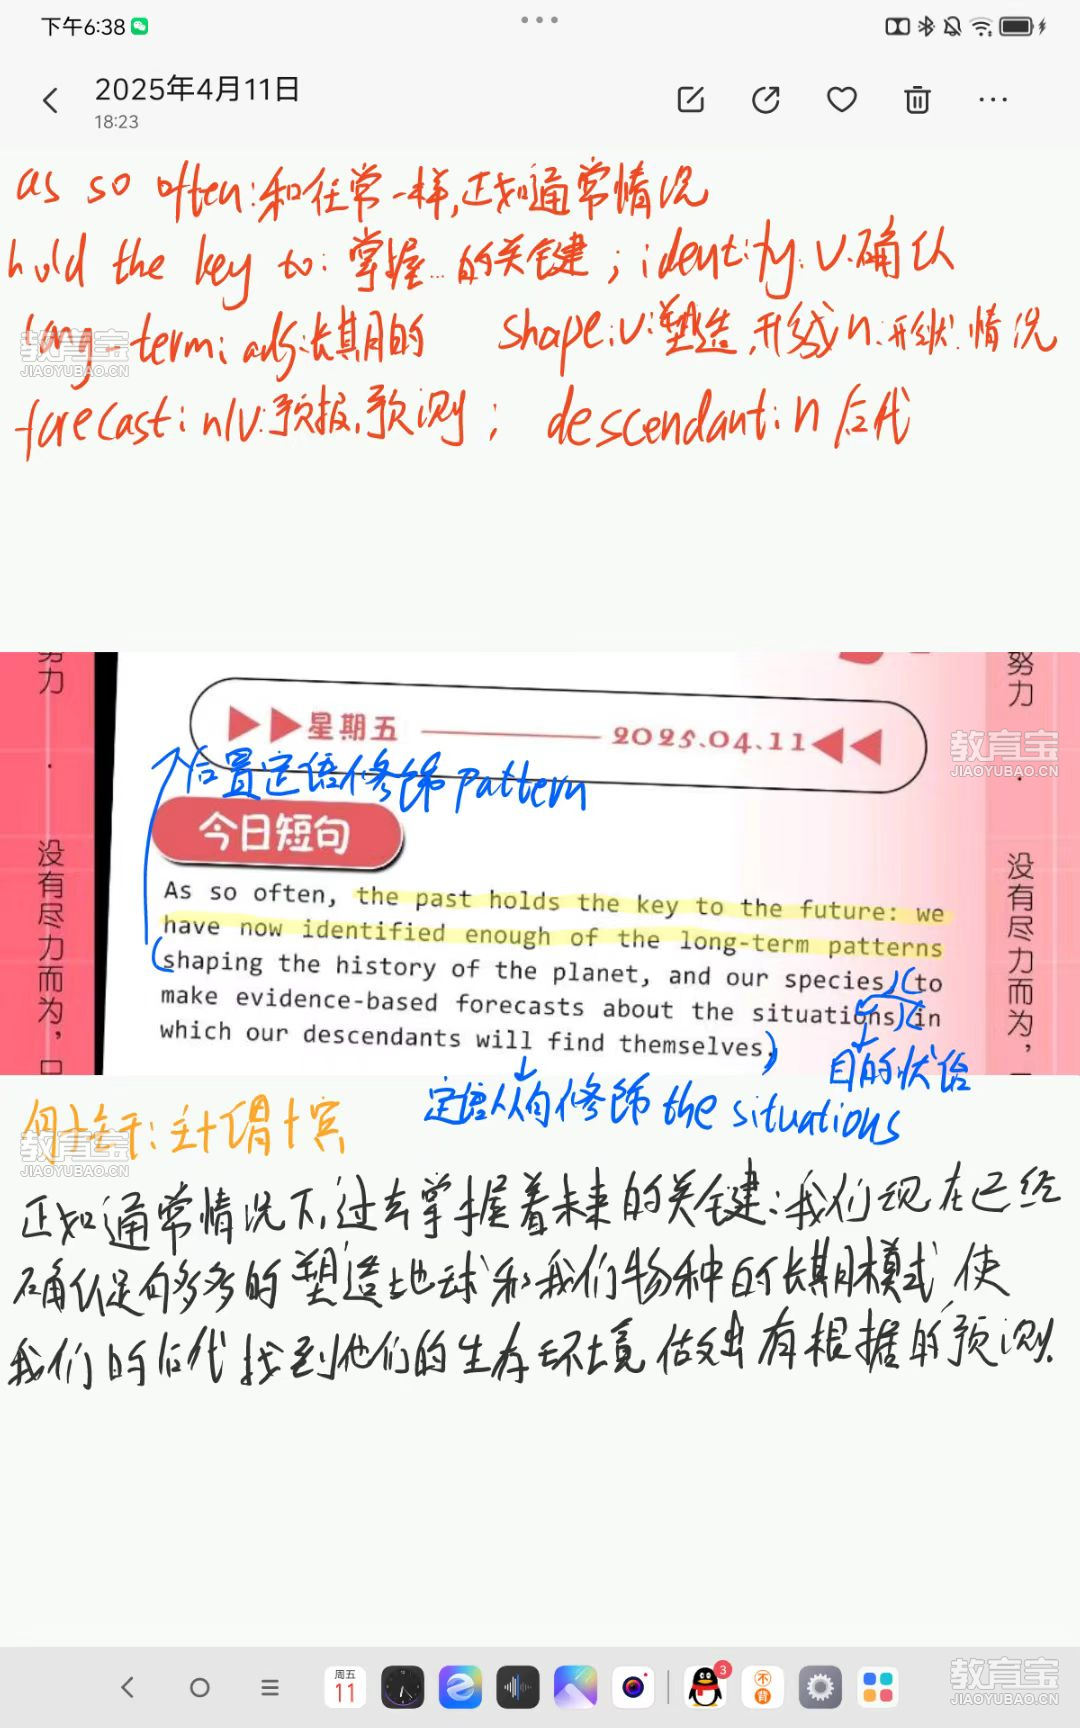 下午6:38
2025年4月11日
18:23
as so often:和往常一样,正如通常情况
hold the key to: 掌握...的关键; identify: v.确认
long-term: adj:长期的 shape:v:塑造,形成 n:形状.情况
forecast: n/v:预报.预测; descendant: n 后代
教育宝
JIAOYUBAO.CN
努力
努力
星期五 2025.04.11
教育宝
JIAOYUBAO.CN
后置定语修饰 pattern
今日短句
没有尽力而为,
没有尽力而为,
As so often, the past holds the key to the future: we
have now identified enough of the long-term patterns
shaping the history of the planet, and our species, to
make evidence-based forecasts about the situations in
which our descendants will find themselves.
目的状语
定语从句修饰 the situations
句子主干:主+谓+宾
教育宝
JIAOYUBAO.CN
正如通常情况下,过去掌握着未来的关键:我们现在已经
确认足够多的塑造地球和我们物种的长期模式,使
我们的后代找到他们的生存环境做出有根据的预测.
周五
11
3
不背
教育宝
JIAOYUBAO.CN